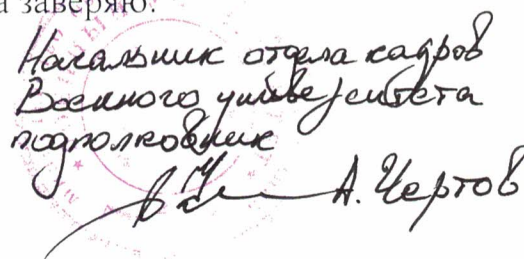 а заверяю.
Начальник отдела кадров
Военного университета
подполковник
А. Чертов